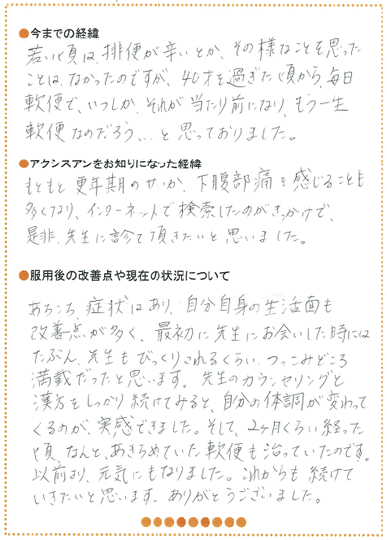 ●今までの経緯
若い頃は、排便が辛いとか、その様なことを思った
ことは、なかったのですが、40才を過ぎた頃から、毎日
軟便で、いつしか、それが当たり前になり、もう一生
軟便なのだろう…と思っておりました。
●アクシスアンをお知りになった経緯
もともと更年期のせいか、下腹部痛を感じることも
多くなり、インターネットで検索したのがきっかけで、
是非、先生に診て頂きたいと思いました。
●服用後の改善点や現在の状況について
あちこち、症状はあり、自分自身の生活面も
改善点が多く、最初に先生にお会いした時には
たぶん、先生もびっくりされるくらい、つっこみどころ
満載だったと思います。先生のカウンセリングと
漢方をしっかり続けてみると、自分の体調が変わって
くるのが、実感できました。そして、2ヶ月くらい経った
頃、なんと、あきらめていた軟便も治っていたのです。
以前より、元気にもなりました。これからも続けて
いきたいと思います。ありがとうございました。